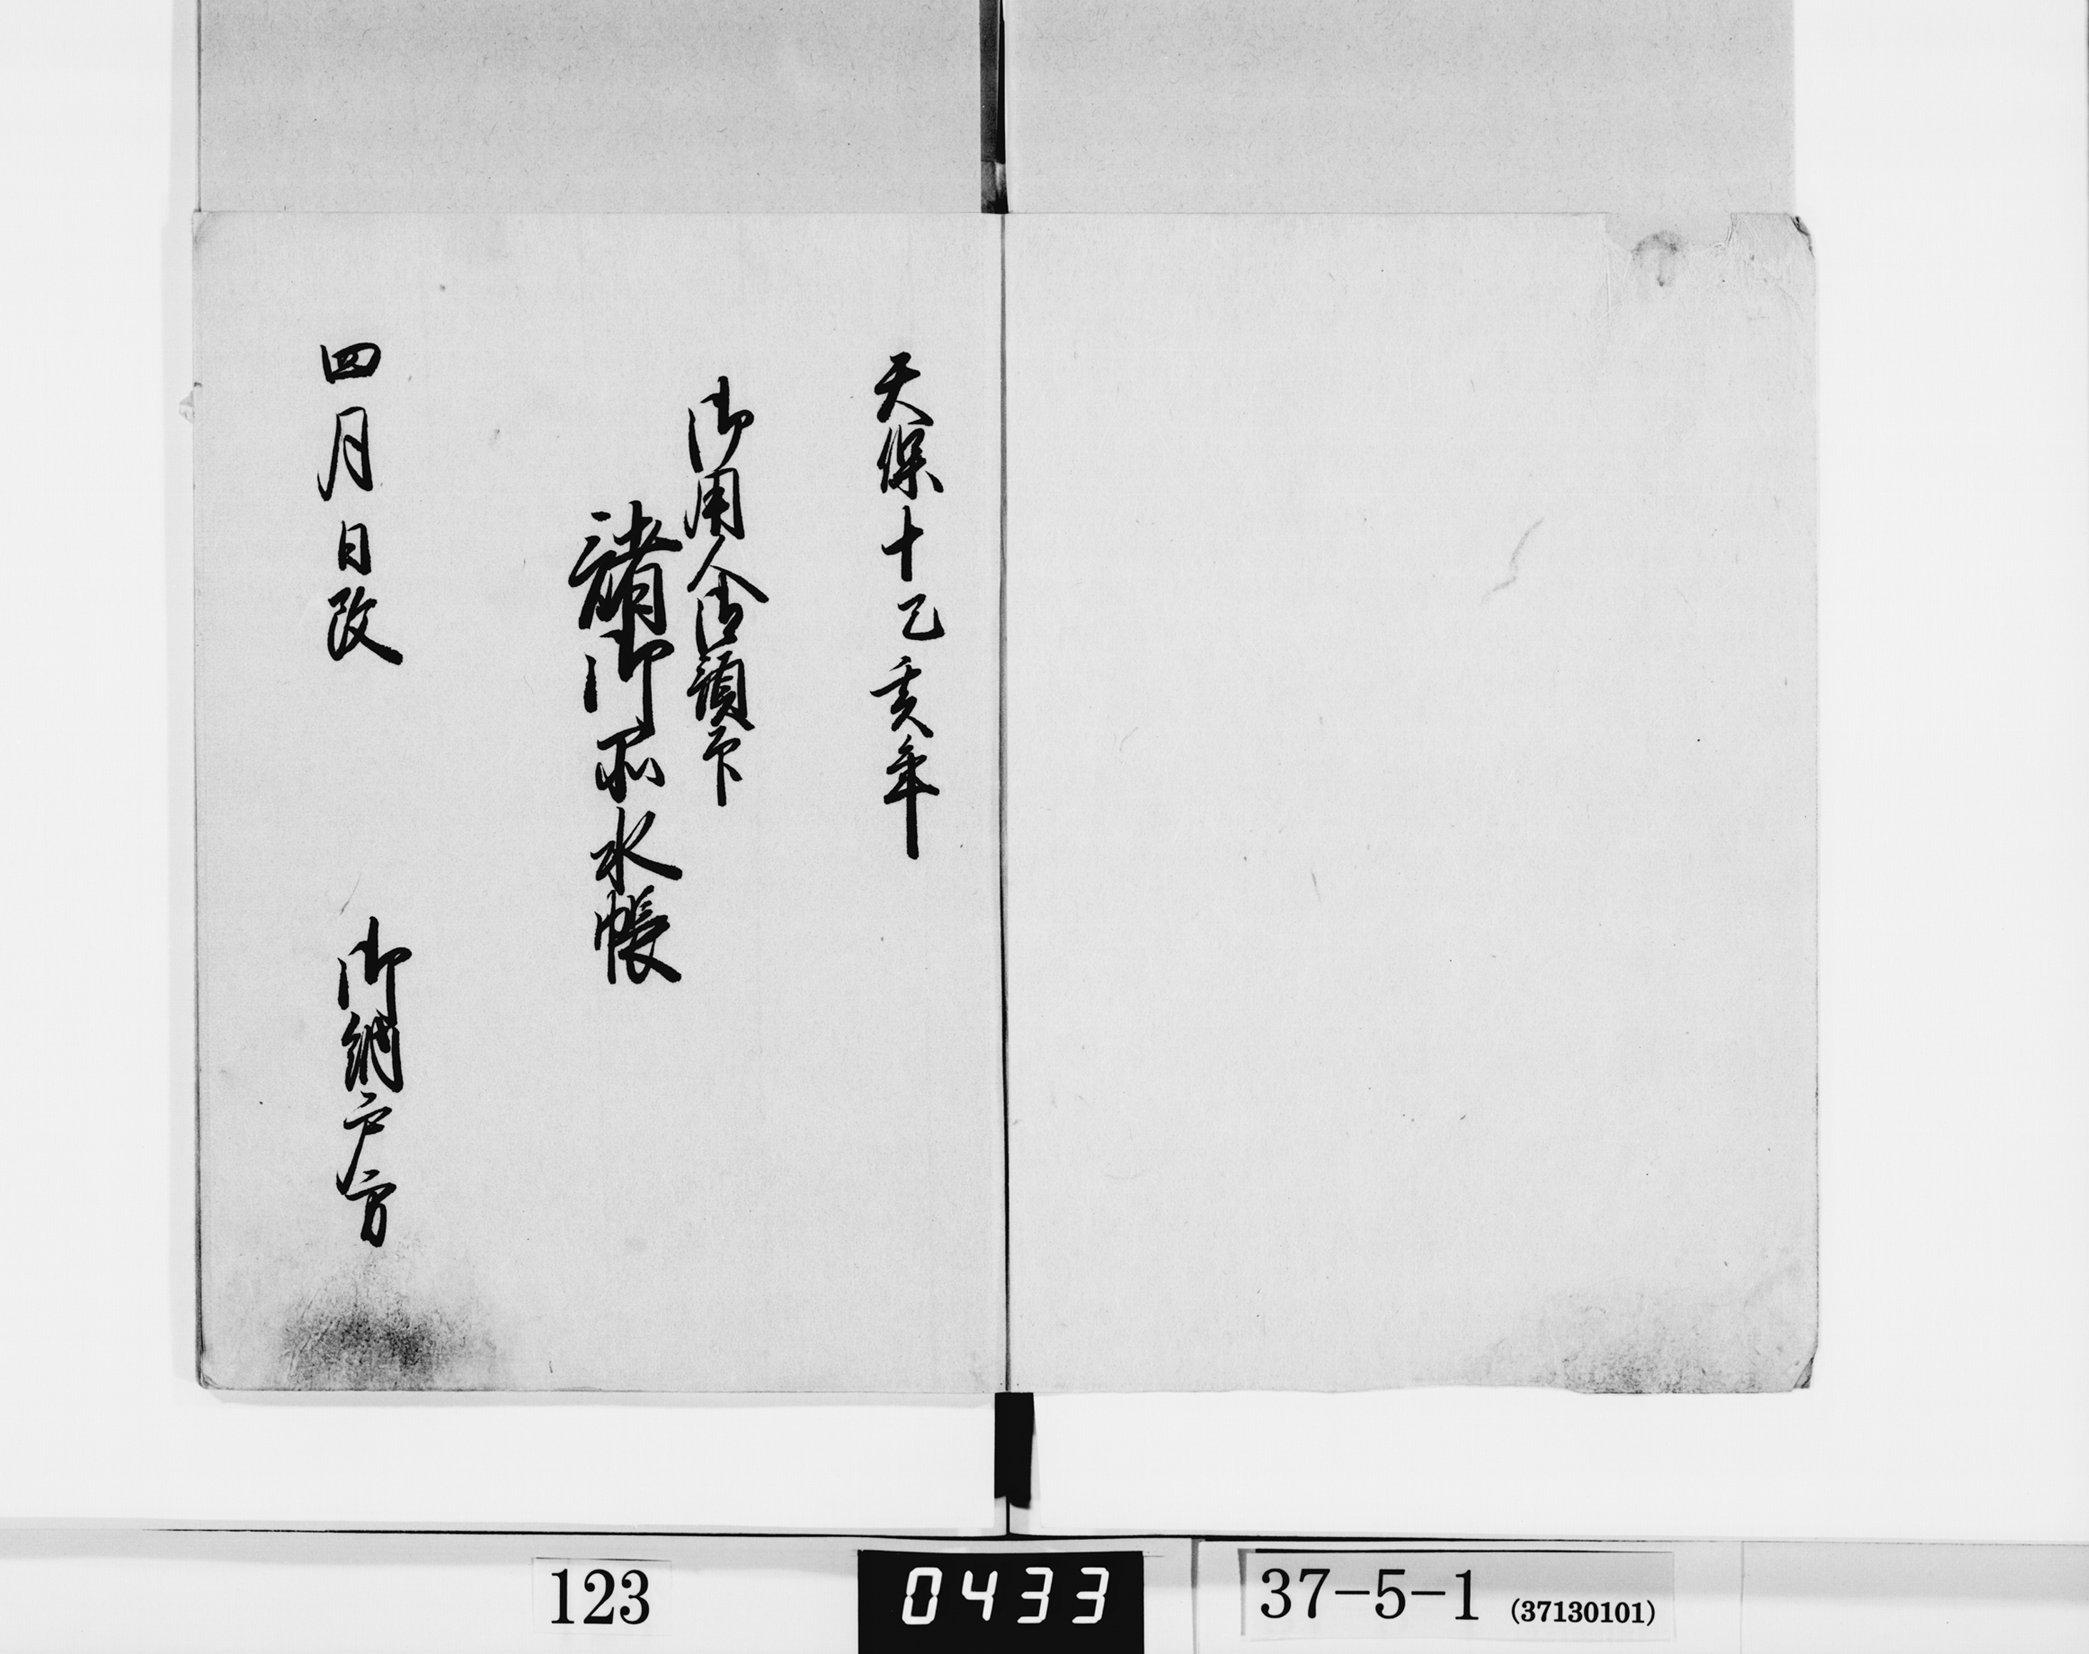 天保十己亥年
御用人御預下
諸御不水帳
四月日改
御納戸方
123
0433
37-5-1 (37130101)